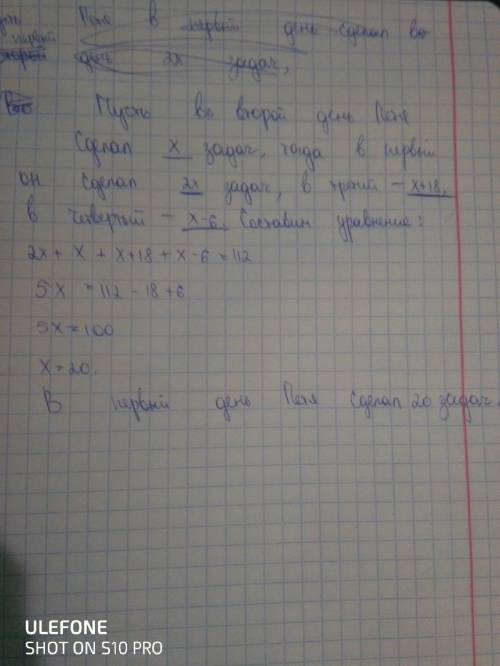 Петя в первый день сделал во
первый
день 2x задач,
Пусть во второй день Петя
сделал x задач, тогда в первый
он сделал 2x задач, в третий – x+18,
в четвертый – x-6. Составим уравнение:
2x + x + x+18 + x-6 = 112
5x = 112 - 18 + 6
5x = 100
x = 20.
В первый день Петя сделал 20 задач.
ULEFONE
SHOT ON S10 PRO